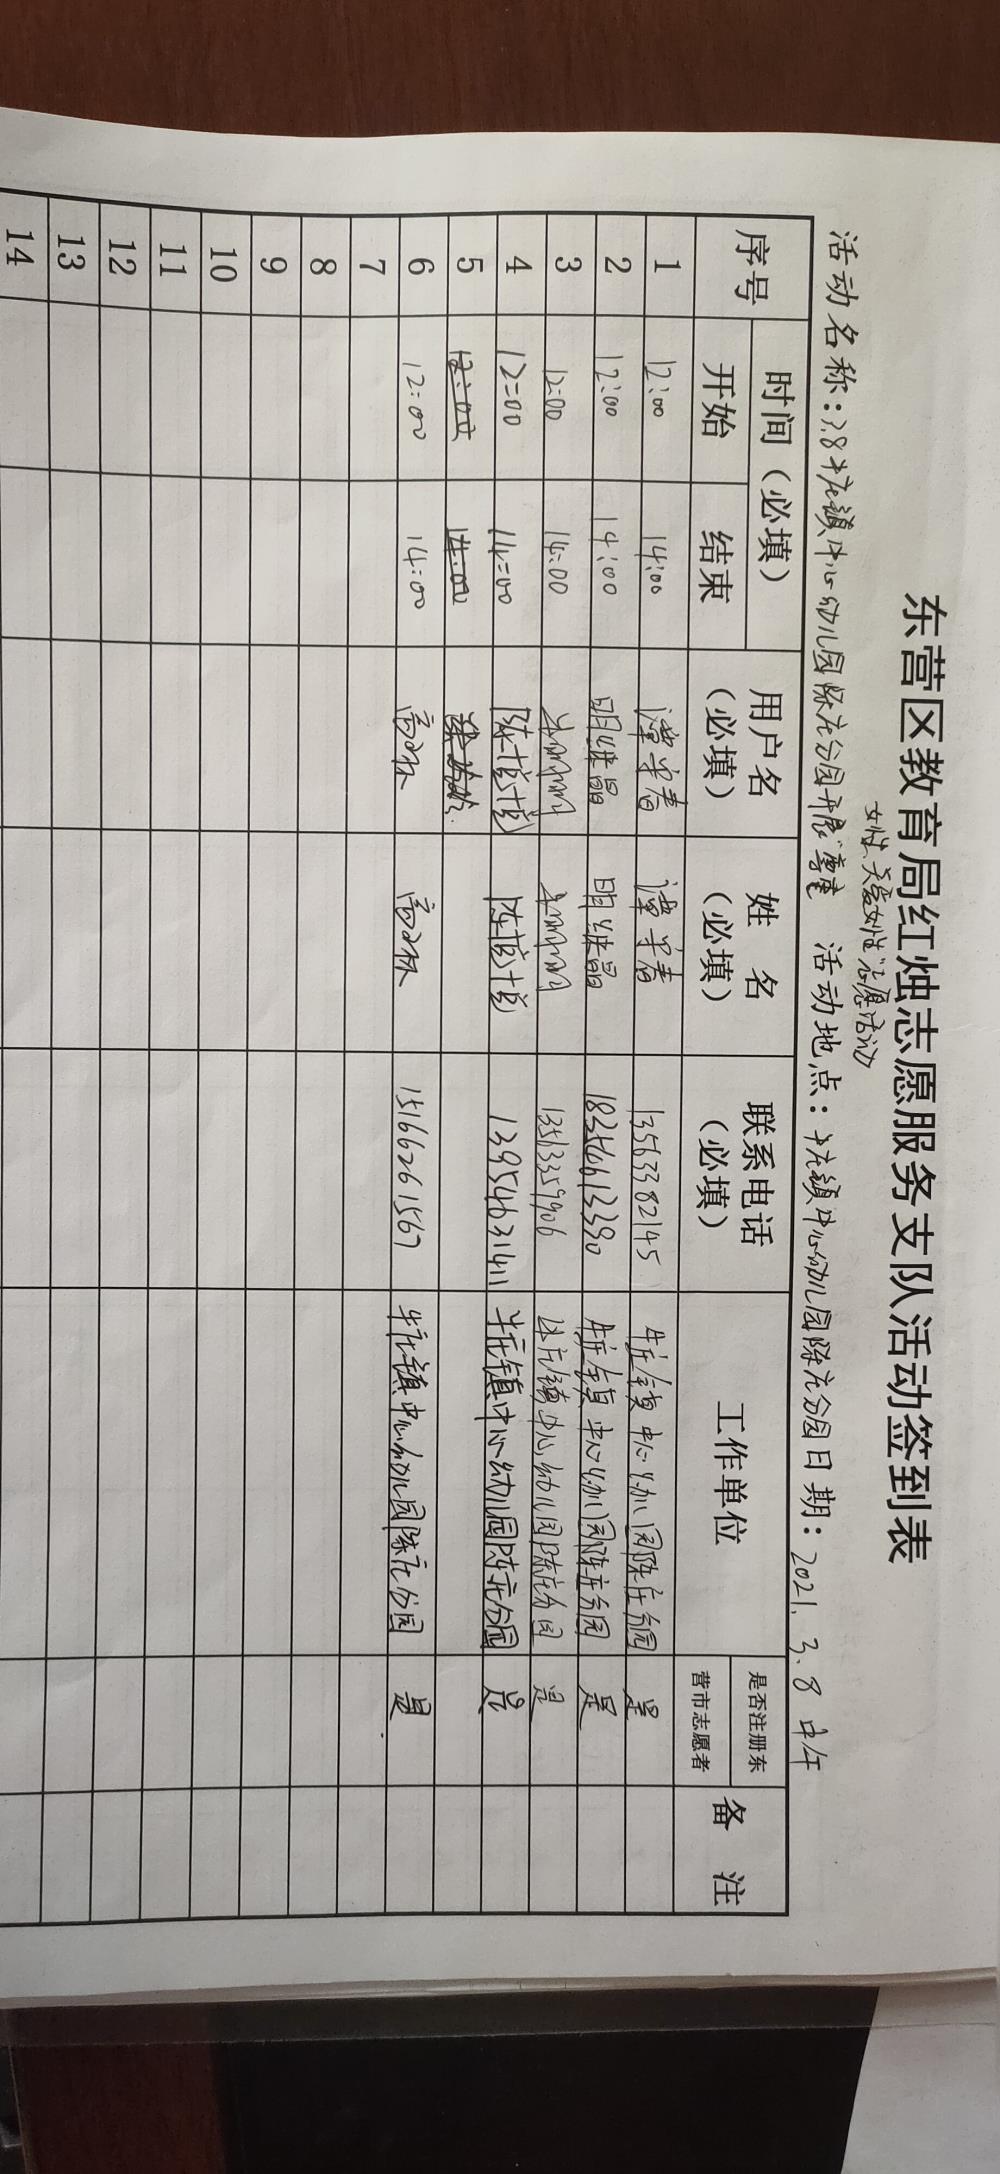 东营区教育局红烛志愿服务支队活动签到表
女性、关爱女性”志愿活动
活动名称：3.8牛庄镇中心幼儿园陈庄分园开展“尊重 活动地点：牛庄镇中心幼儿园陈庄分园 日期：2021.3.8 中午
序号 时间（必填） 用户名（必填） 姓 名（必填） 联系电话（必填） 工作单位 是否注册东营市志愿者 备 注
开始 结束
1 12:00 14:00 春 春 13563382145 牛庄镇中心幼儿园陈庄分园 是
2 12:00 14:00 明继晶 明继晶 18354613390 牛庄镇中心幼儿园陈庄分园 是
3 12:00 14:00 13563359906 牛庄镇中心幼儿园陈庄分园 是
4 12:00 14:00 陈 陈 13954631411 牛庄镇中心幼儿园陈庄分园 是
5 12:00 14:00
6 12:00 14:00 高 高 15166261567 牛庄镇中心幼儿园陈庄分园 是
7
8
9
10
11
12
13
14